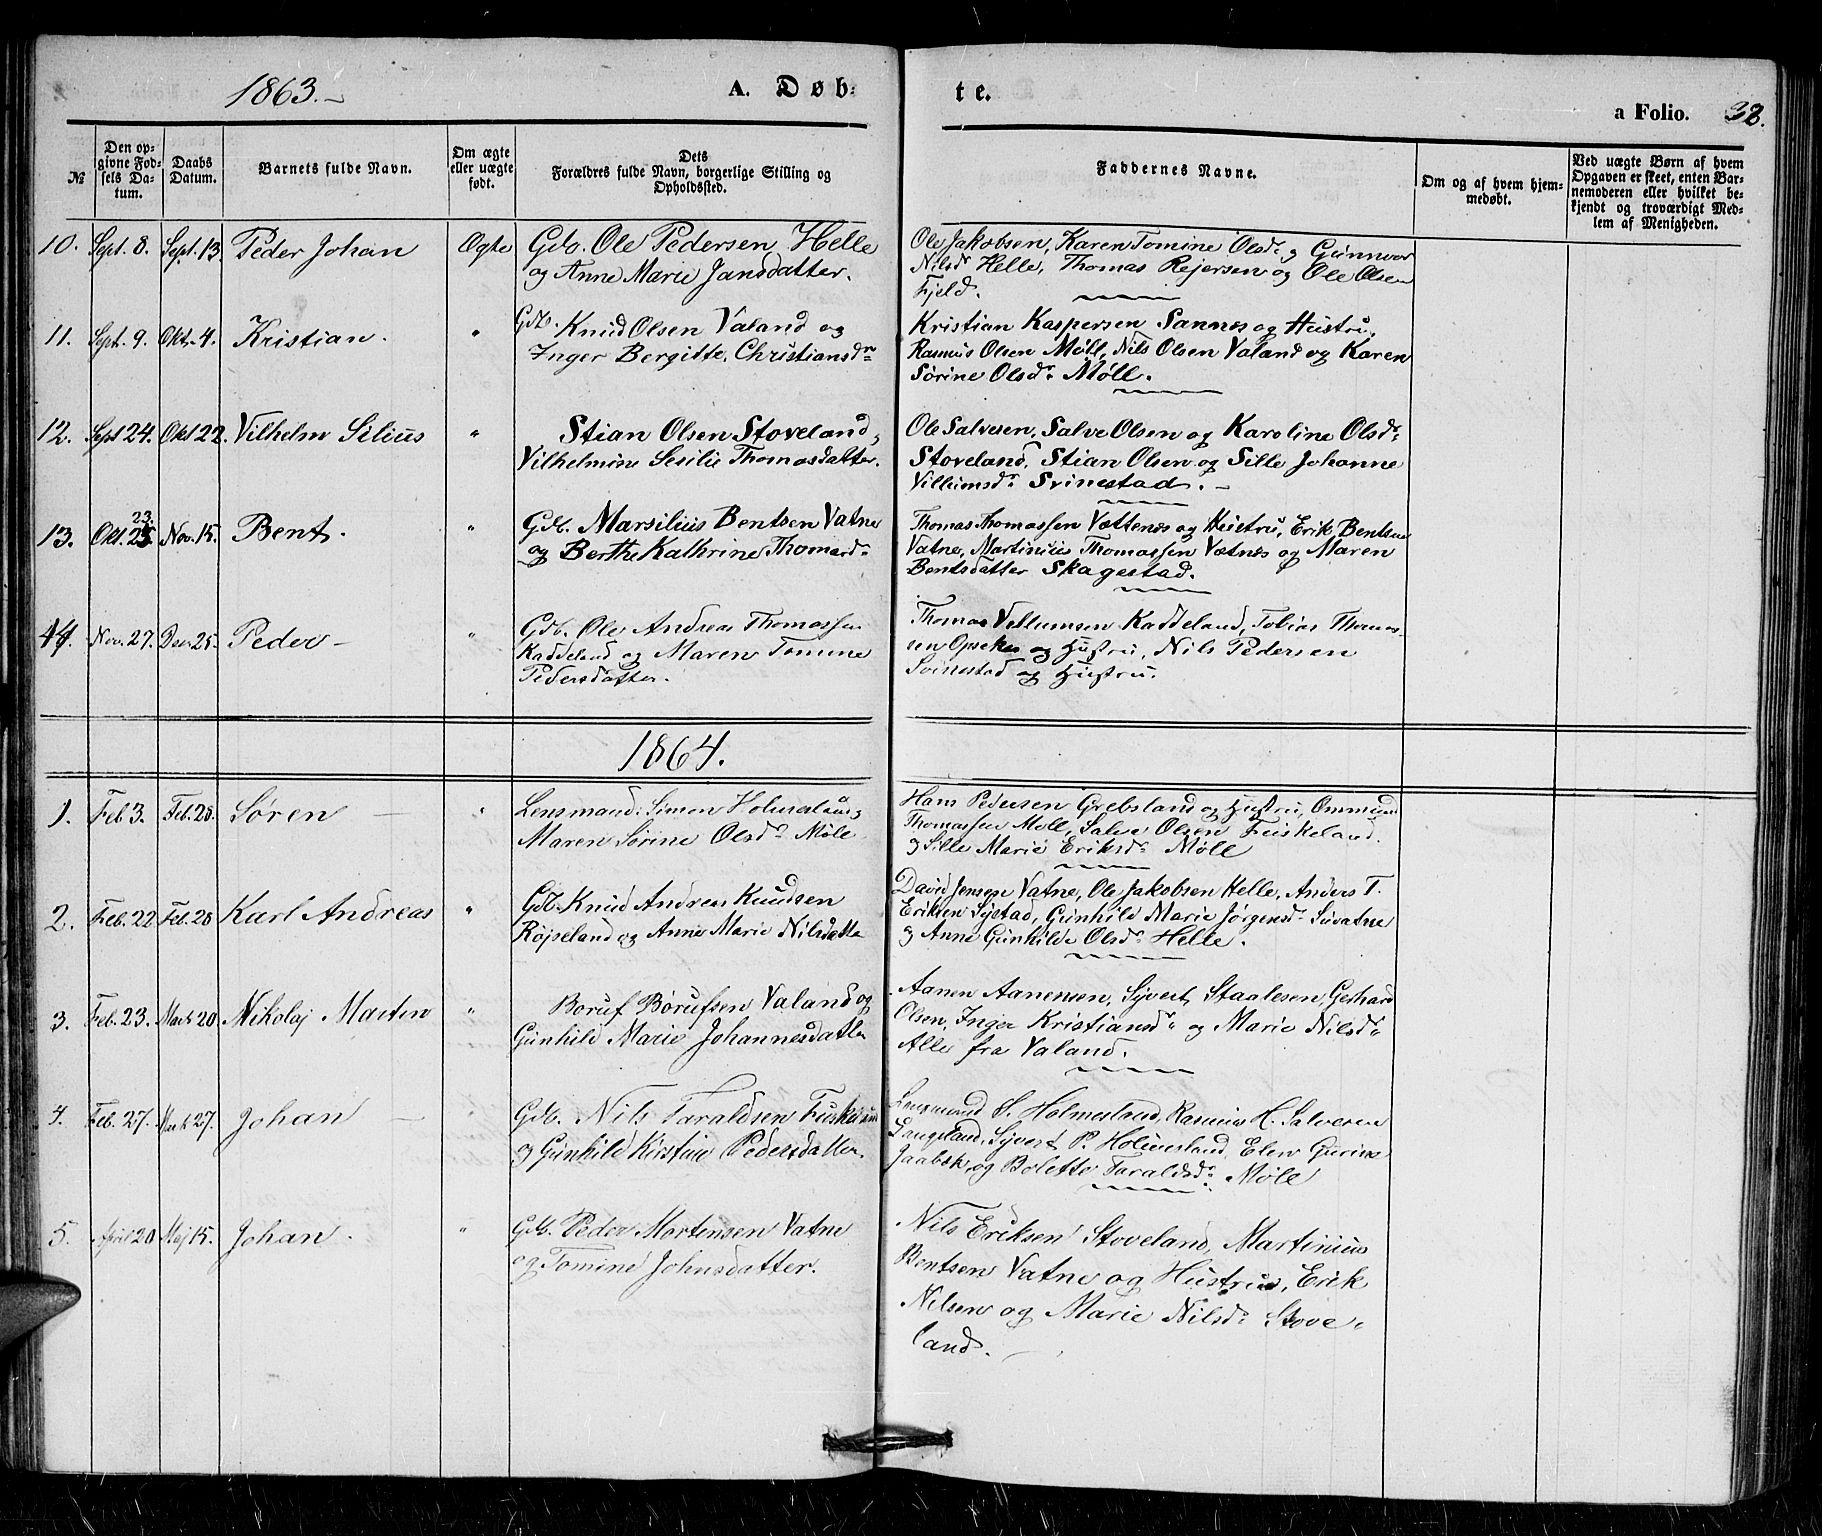 1863.
A. Døb-
te.
a Folio. 38.
№
Den op-
givne Fød-
sels Da-
tum.
Daabs
Datum.
Barnets fulde Navn.
Om ægte
eller uægte
født.
Dets
Forældres fulde Navn, borgerlige Stilling og
Opholdssted.
Faddernes Navne.
Om og af hvem hjem-
medøbt.
Ved uægte Børn af hvem
Opgaven er skeet, enten Bar-
nemoderen eller hvilket be-
kjendt og troværdigt Med-
lem af Menigheden.
10. Sept. 8. Sept. 13. Peder Johan Ogte
Gdb. Ole Pedersen Helle
og Anne Marie Jansdatter.
Ole Jakobsen, Karen Tomine Olsd. og Gunnvor
Nilsd. Helle, Thomas Rejersen og Ole Olsen
Fjeld.
11. Sept. 9. Okt. 4. Kristian. "
Gdb. Knud Olsen Valand og
Inger Bergitte Christiansdr
Kristian Kaspersen Sannes og Hustru,
Rasmus Olsen Møll, Nils Olsen Valand og Karen
Sørine Olsdr Møll.
12. Sept 24. Okt 22. Vilhelm Silius "
Stian Olsen Stoveland,
Vilhelmine Sesilie Thomasdatter.
Ole Salvesen, Salve Olsen og Karoline Olsdr
Stoveland, Stian Olsen og Sille Johanne
Villumsdr Svinestad.
13. Okt. 23. Nov. 15. Bent. "
Gdb. Marsilius Bentsen Vatne
og Berthe Kathrine Thomasdr
Thomas Thomassen Vættenes og Hustru, Erik Bentsen
Vatne, Martinius Thomassen Vætnes og Maren
Bentsdatter Skagestad.
14. Nov. 27. Des. 25. Peder "
Gdb. Ole Andreas Thomassen
Kaddeland og Maren Tomine
Pedersdatter.
Thomas Vellumsen Kaddeland, Tobias Thomas-
sen Opseker og Hustru, Nils Pedersen
Svinestad og Hustru.
1864.
1. Feb. 3. Feb. 28. Søren "
Lensmand: Simon
Maren Sørine Olsdr Møle
Hans Pedersen Grebsland og Hustru, Ommund
Thomassen Moll, Salve Olsen Fuskeland.
og Sille Marie Eriksdr Møll
2. Feb. 22 Feb. 28 Karl Andreas "
Gdb. Knud Andreas Knudsen
Røjseland og Anne Marie Nilsdatte
David Jensen Vatne, Ole Jakobsen Helle, Anders T.
Eriksen Sÿstad, Gunhild Marie Jørgensdr Suvatne
og Anne Gunhilde Olsdr Helle.
3. Feb. 23. Marts 20 Nikolaj Martin "
Boruf Børufsen Valand og
Gunhild Marie Johannesdatte
Aanen Aanensen, Syvert Staalesen, Gerhard
Olsen, Inger Kristiansdr og Marie Nilsdr
Alle fra Valand.
4. Feb. 27. Marts 27. Johan
Gdb. Nils Taraldsen
og Gunhild Kirstine Pedersdatter.
Lensmand S. Holmestrand, Rasmus H. Salvesen
Langeland, Syvert P. Holmesland, Elen Gurine
Jaabsk. og Bolette Taraldsdr Møll
5. April 20 Maj 15. Johan. "
Gdb. Peder Mortensen Vatne
og Tomine Johnsdatter.
Nils Eriksen Stoveland, Martinius
Bentsen Vatne og Hustru, Erik
Nilsen og Marie Nilsdr Stove-
land.